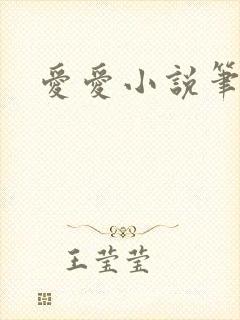 愛愛小説筆
王莹莹